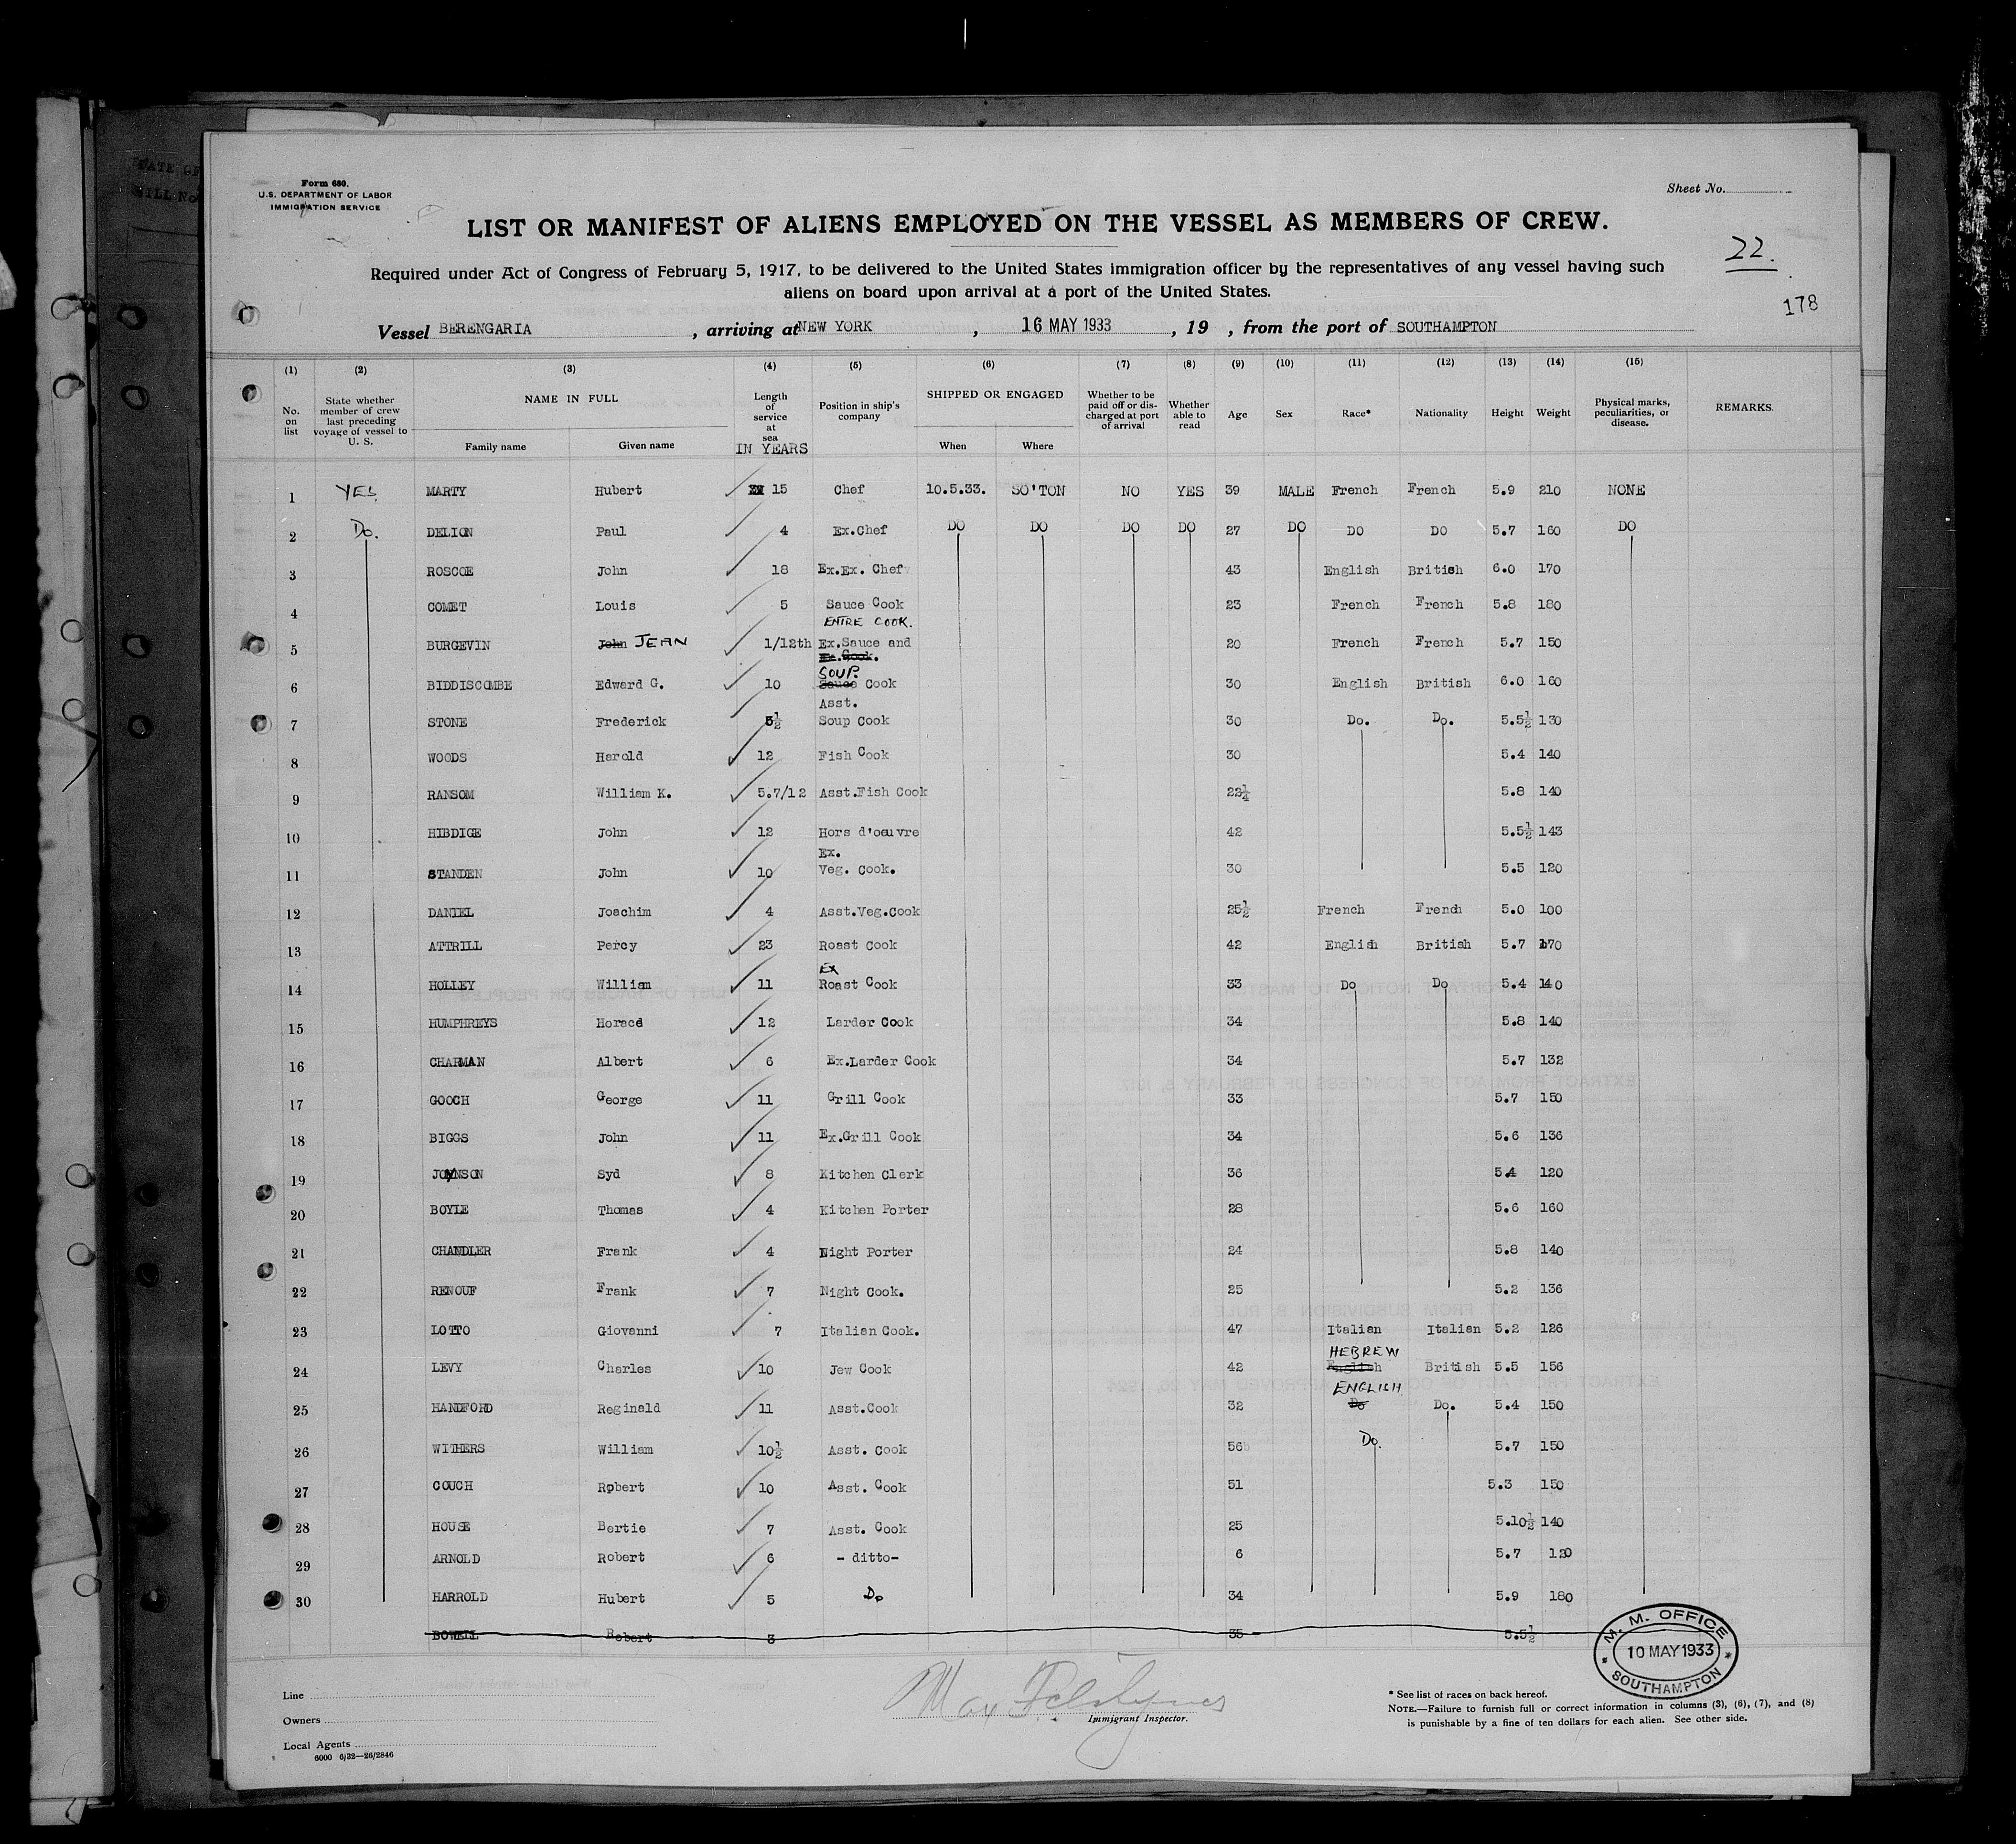 Form 680.
U.S. DEPARTMENT OF LABOR
IMMIGRATION SERVICE
Sheet No.
LIST OR MANIFEST OF ALIENS EMPLOYED ON THE VESSEL AS MEMBERS OF CREW.
22.
Required under Act of Congress of February 5, 1917, to be delivered to the United States immigration officer by the representatives of any vessel having such
aliens on board upon arrival at a port of the United States.
178
Vessel BERENGARIA , arriving at NEW YORK , 16 MAY 1933 , 19 , from the port of SOUTHAMPTON
(1) (2) (3) (4) (5) (6) (7) (8) (9) (10) (11) (12) (13) (14) (15)
No. on list State whether member of crew last preceding voyage of vessel to U. S. NAME IN FULL Family name Given name Length of service at sea IN YEARS Position in ship's company SHIPPED OR ENGAGED When Where Whether to be paid off or discharged at port of arrival Whether able to read Age Sex Race* Nationality Height Weight Physical marks, peculiarities, or disease. REMARKS.
1 YES MARTY Hubert 15 Chef 10.5.33. SO'TON NO YES 39 MALE French French 5.9 210 NONE
2 Do. DELION Paul 4 Ex.Chef DO DO DO DO 27 DO DO DO 5.7 160 DO
3 ROSCOE John 18 Ex.Ex. Chef 43 English British 6.0 170
4 COMET Louis 5 Sauce Cook 23 French French 5.8 180
ENTRE COOK.
5 BURGEVIN John JEAN 1/12th Ex.Sauce and 20 French French 5.7 150
Ex.Cook.
SOUP.
6 BIDDISCOMBE Edward G. 10 Sauce Cook 30 English British 6.0 160
Asst.
7 STONE Frederick 5½ Soup Cook 30 Do. Do. 5.5½ 130
8 WOODS Harold 12 Fish Cook 30 5.4 140
9 RANSOM William K. 5.7/12 Asst.Fish Cook 22¼ 5.8 140
10 HIBDIGE John 12 Hors d'oeuvre 42 5.5½ 143
Ex.
11 STANDEN John 10 Veg. Cook. 30 5.5 120
12 DANIEL Joachim 4 Asst.Veg.Cook 25½ French French 5.0 100
13 ATTRILL Percy 23 Roast Cook 42 English British 5.7 170
EX
14 HOLLEY William 11 Roast Cook 33 Do Do 5.4 140
15 HUMPHREYS Horace 12 Larder Cook 34 5.8 140
16 CHARMAN Albert 6 Ex.Larder Cook 34 5.7 132
17 GOOCH George 11 Grill Cook 33 5.7 150
18 BIGGS John 11 Ex.Grill Cook 34 5.6 136
19 JOYNSON Syd 8 Kitchen Clerk 36 5.4 120
20 BOYLE Thomas 4 Kitchen Porter 28 5.6 160
21 CHANDLER Frank 4 Night Porter 24 5.8 140
22 RENOUF Frank 7 Night Cook. 25 5.2 136
23 LOTTO Giovanni 7 Italian Cook. 47 Italian Italian 5.2 126
HEBREW
24 LEVY Charles 10 Jew Cook 42 English British 5.5 156
ENGLISH
25 HANDFORD Reginald 11 Asst.Cook 32 Do Do. 5.4 150
26 WITHERS William 10½ Asst. Cook 56 Do. 5.7 150
27 COUCH Robert 10 Asst. Cook 51 5.3 150
28 HOUSE Bertie 7 Asst. Cook 25 5.10½ 140
29 ARNOLD Robert 6 - ditto- 6 5.7 120
30 HARROLD Hubert 5 Do 34 5.9 180
BOWELL Robert 3 35 5.5½
M. M. OFFICE
10 MAY 1933
SOUTHAMPTON
Line
Owners
Local Agents
6000 6/32—26/2846
Immigrant Inspector.
* See list of races on back hereof.
NOTE.—Failure to furnish full or correct information in columns (3), (6), (7), and (8)
is punishable by a fine of ten dollars for each alien. See other side.